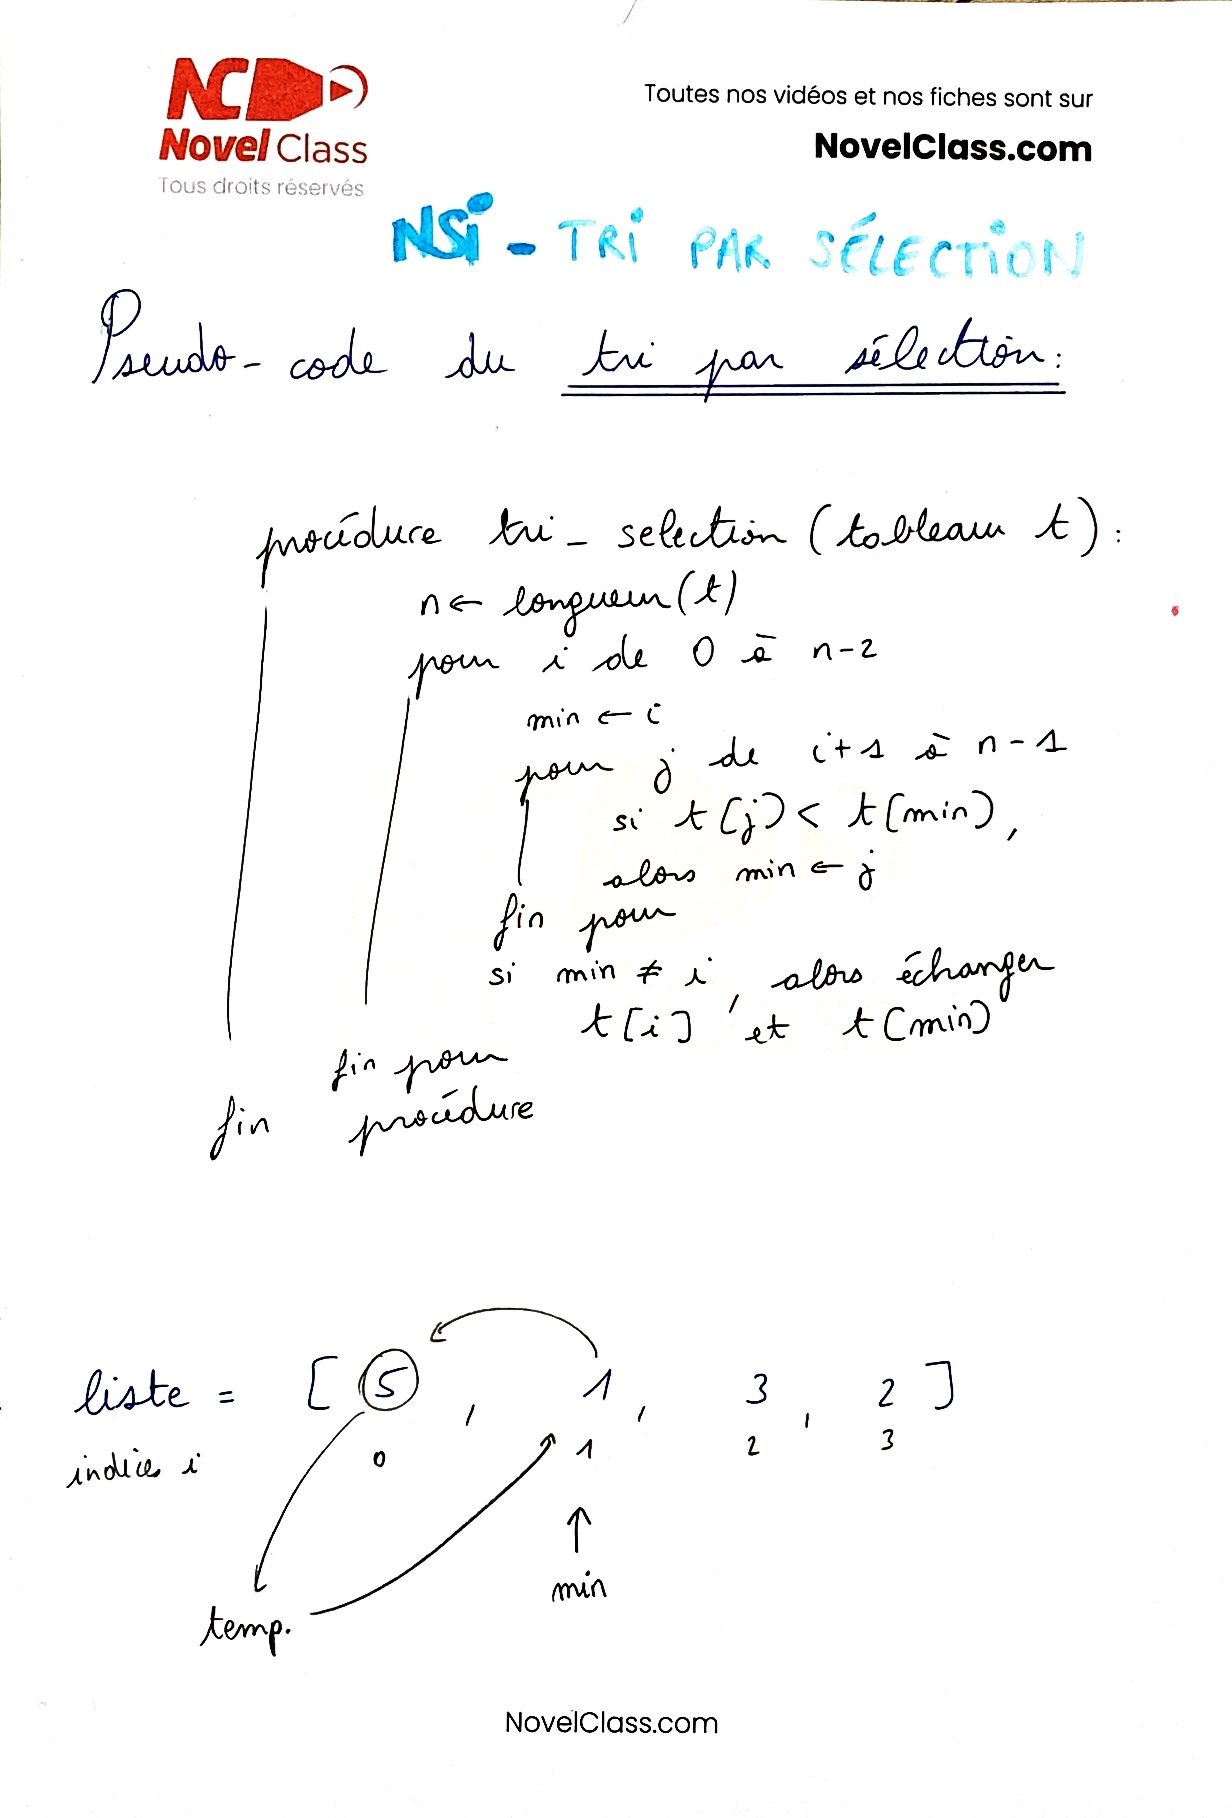 NC
Novel Class
Tous droits réservés
Toutes nos vidéos et nos fiches sont sur
NovelClass.com
NSi - TRI PAR SÉLECTION
Pseudo-code du tri par sélection:
procédure tri_selection (tableau t) :
n ← longueur(t)
pour i de 0 à n-2
min ← i
pour j de i+1 à n-1
si t[j] < t[min],
alors min ← j
fin pour
si min ≠ i, alors échanger
t[i] et t[min]
fin pour
fin procédure
liste = [5, 1, 3, 2]
indices i 0 1 2 3
↑
min
temp.
NovelClass.com